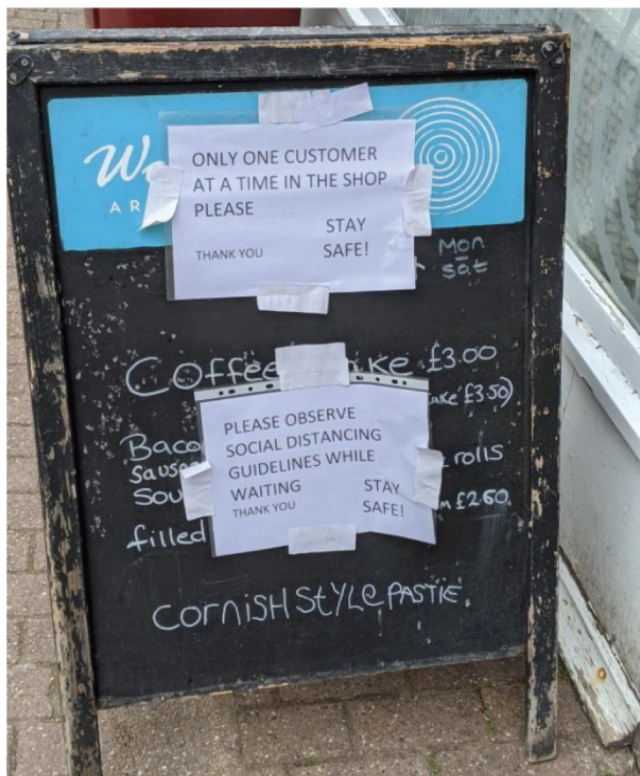 W
AR
ONLY ONE CUSTOMER
AT A TIME IN THE SHOP
PLEASE
STAY
THANK YOU SAFE!
Mon
sat
Coffee ke £3.00
ake £3.50)
PLEASE OBSERVE
SOCIAL DISTANCING
GUIDELINES WHILE
WAITING STAY
THANK YOU SAFE!
Baco rolls
Sause
Sou m £2.60
filled
CORNISH STYLE PASTIE